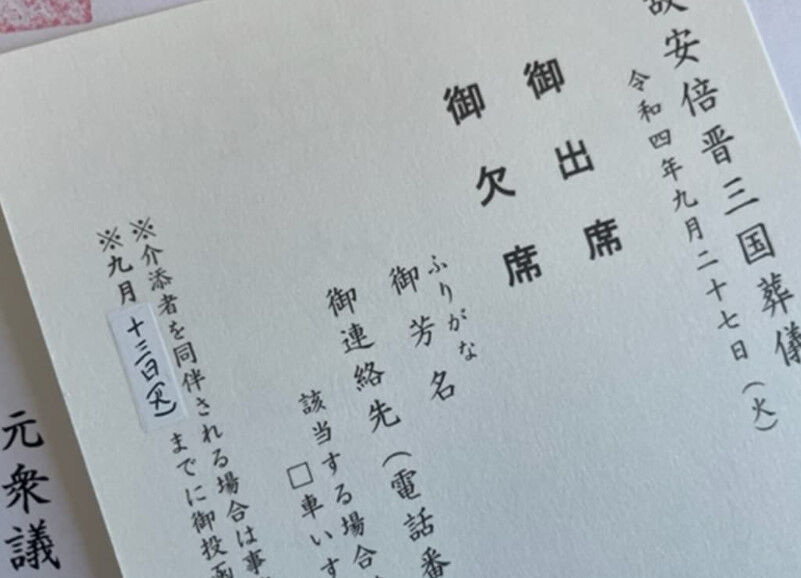 故安倍晋三国葬儀
令和四年九月二十七日（火）
御出席
御欠席
ふりがな
御芳名
御連絡先（電話番
該当する場合
□車いす
※介添者を同伴される場合は事
※九月十三日(火)までに御投函
元衆議